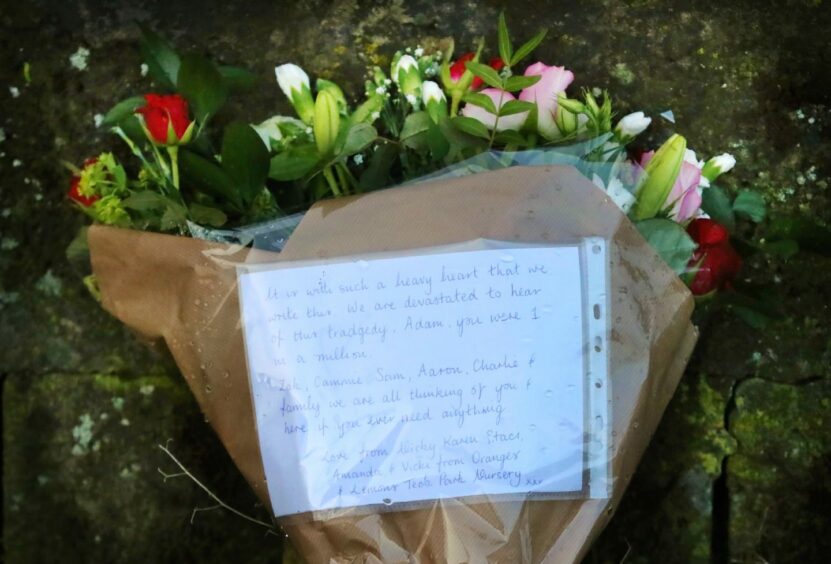 It is with such a heavy heart that we
write this. We are devastated to hear
of this tradgedy. Adam, you were 1
in a million.
Zak, Cammie Sam, Aaron, Charlie &
family we are all thinking of you &
here if you ever need anything.
Love from Nicky Karen Staci,
Amanda & Vicki from Oranges
& Lemons Teak Park Nursery xxx